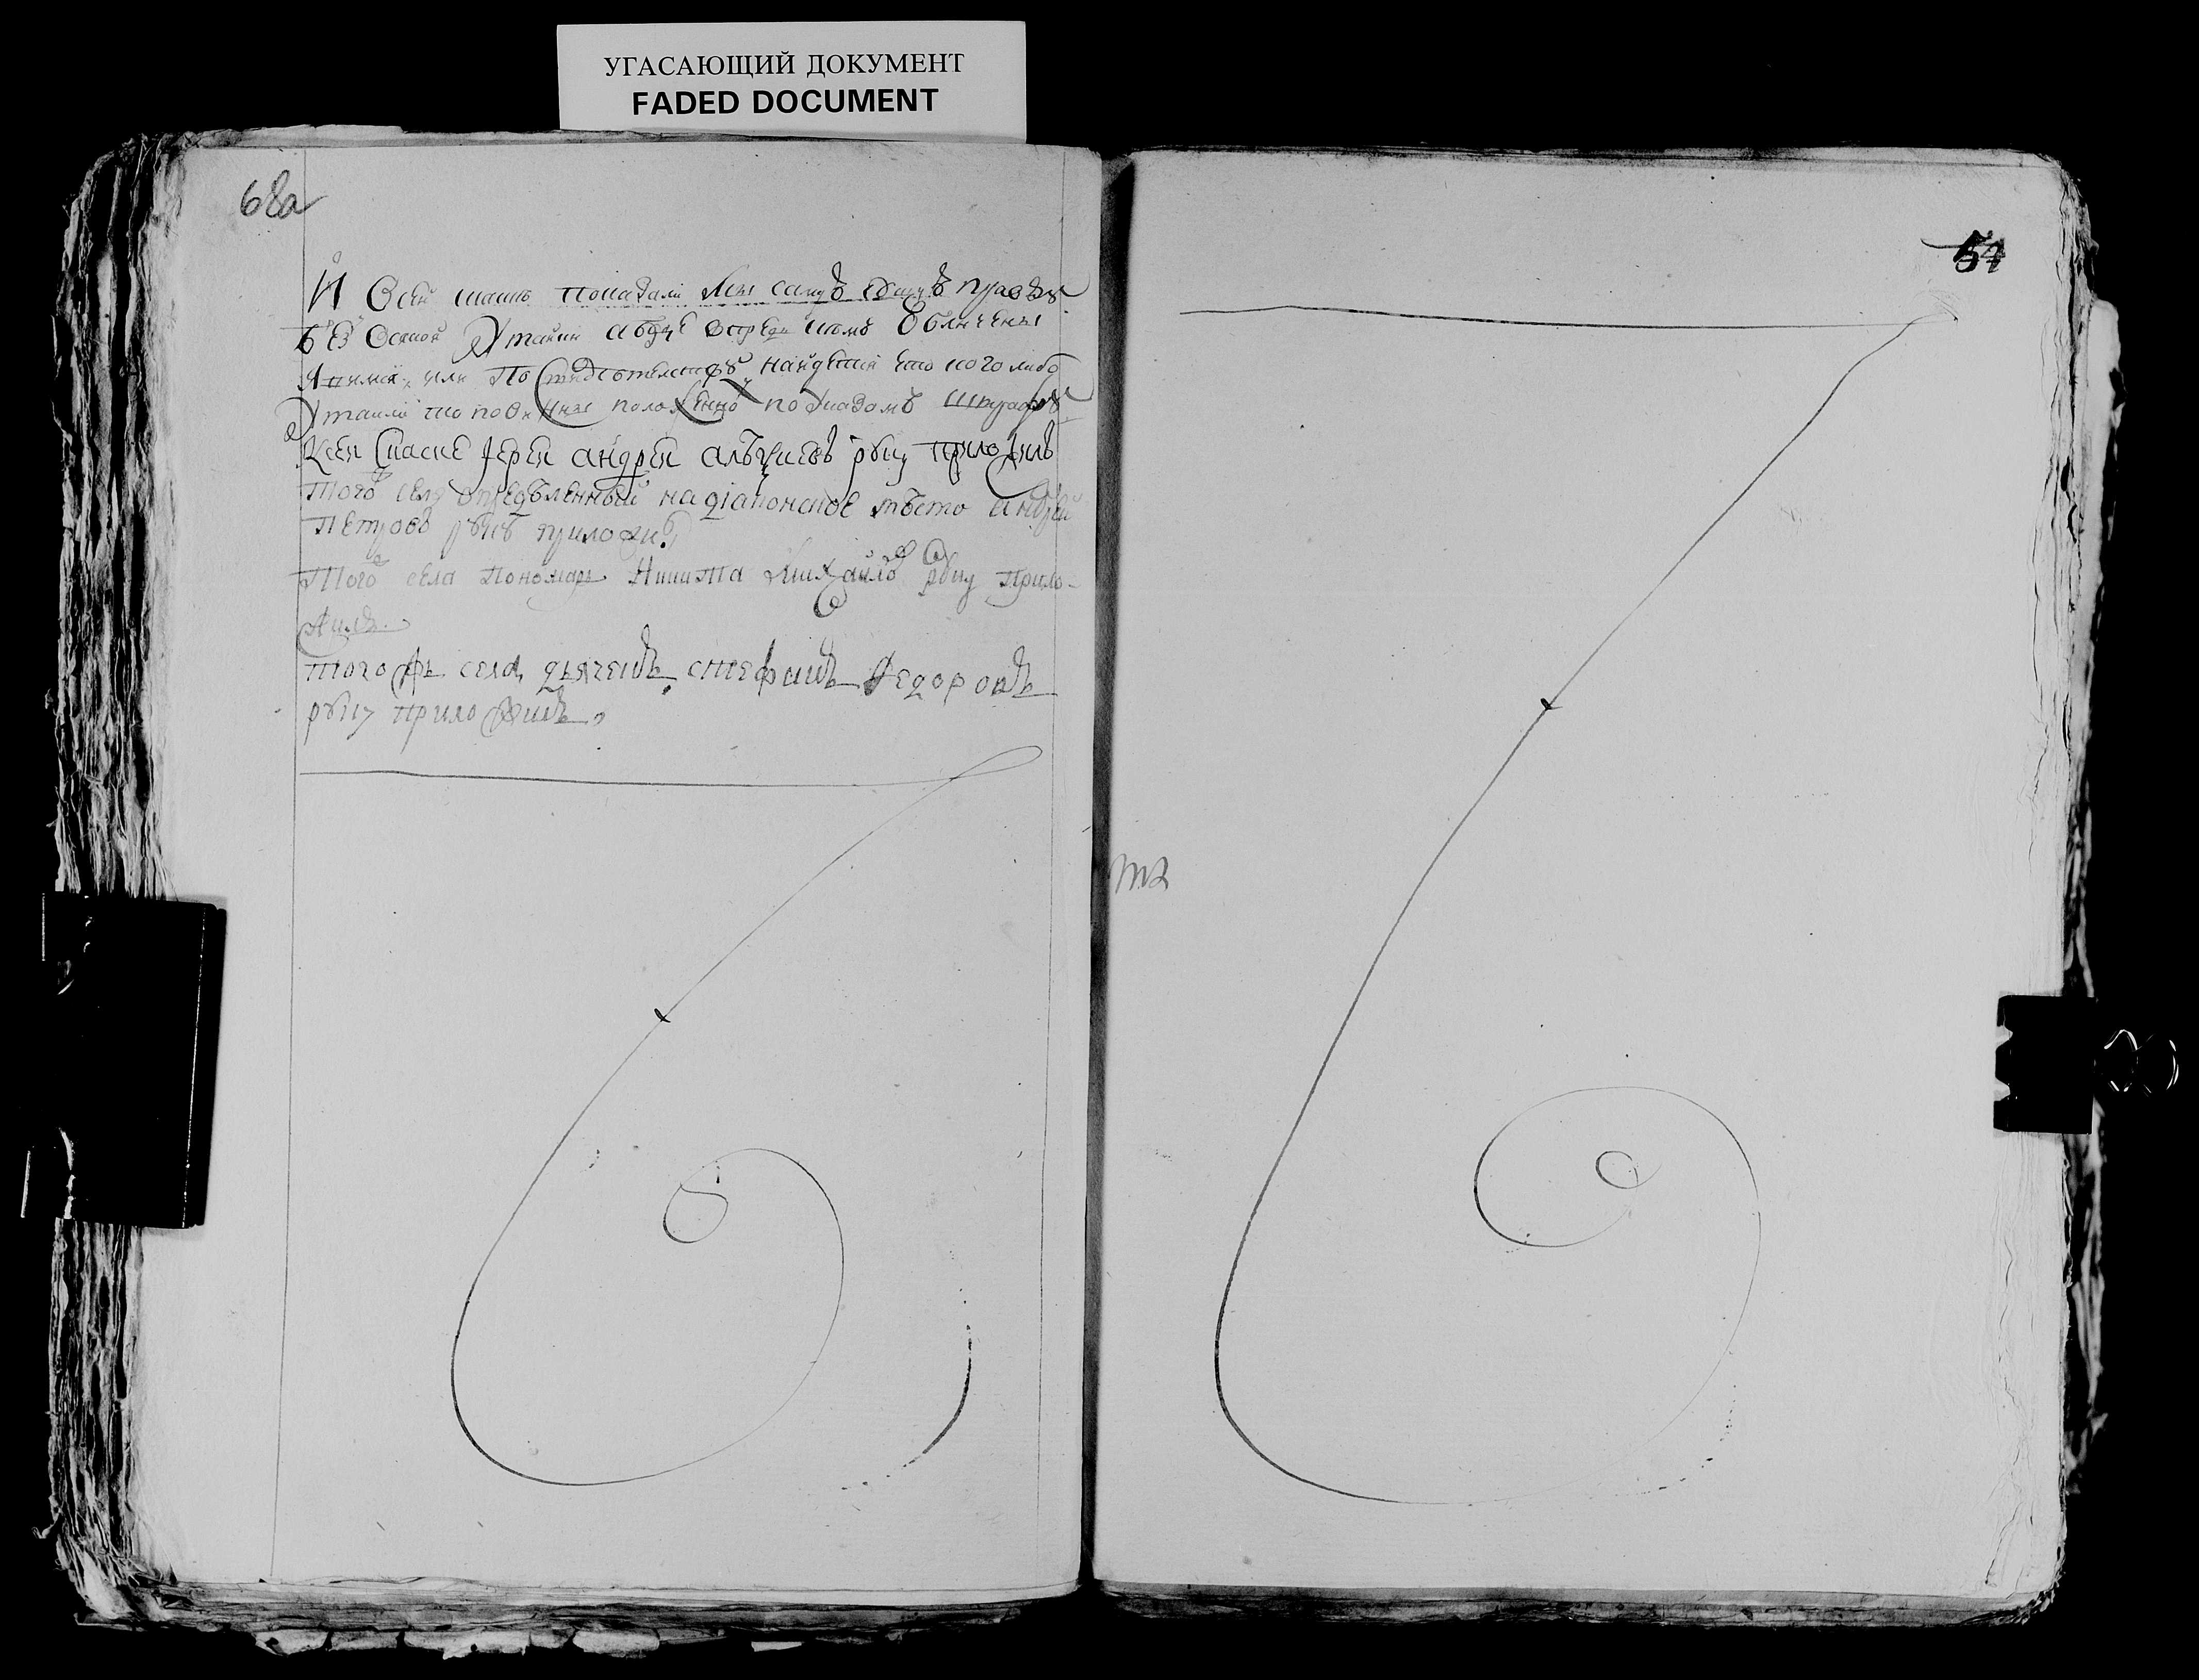 УГАСАЮЩИЙ ДОКУМЕНТ
FADED DOCUMENT
68а
54
И Всей показали мы самую сущую правду
без всякой утайки а буде впредь кемъ обличены
или по свидетелству найдется что кого либо
утаили то повинны положенному по указомъ штрафу
Села Спаске иерей андрей руку приложилъ
того села определенный на дiаконское место андрей
петровъ руку приложи
Того села пономарь Никита Михайловъ руку прило-
жилъ.
того жъ села дьячекъ стефанъ Федоровъ
руку приложилъ.